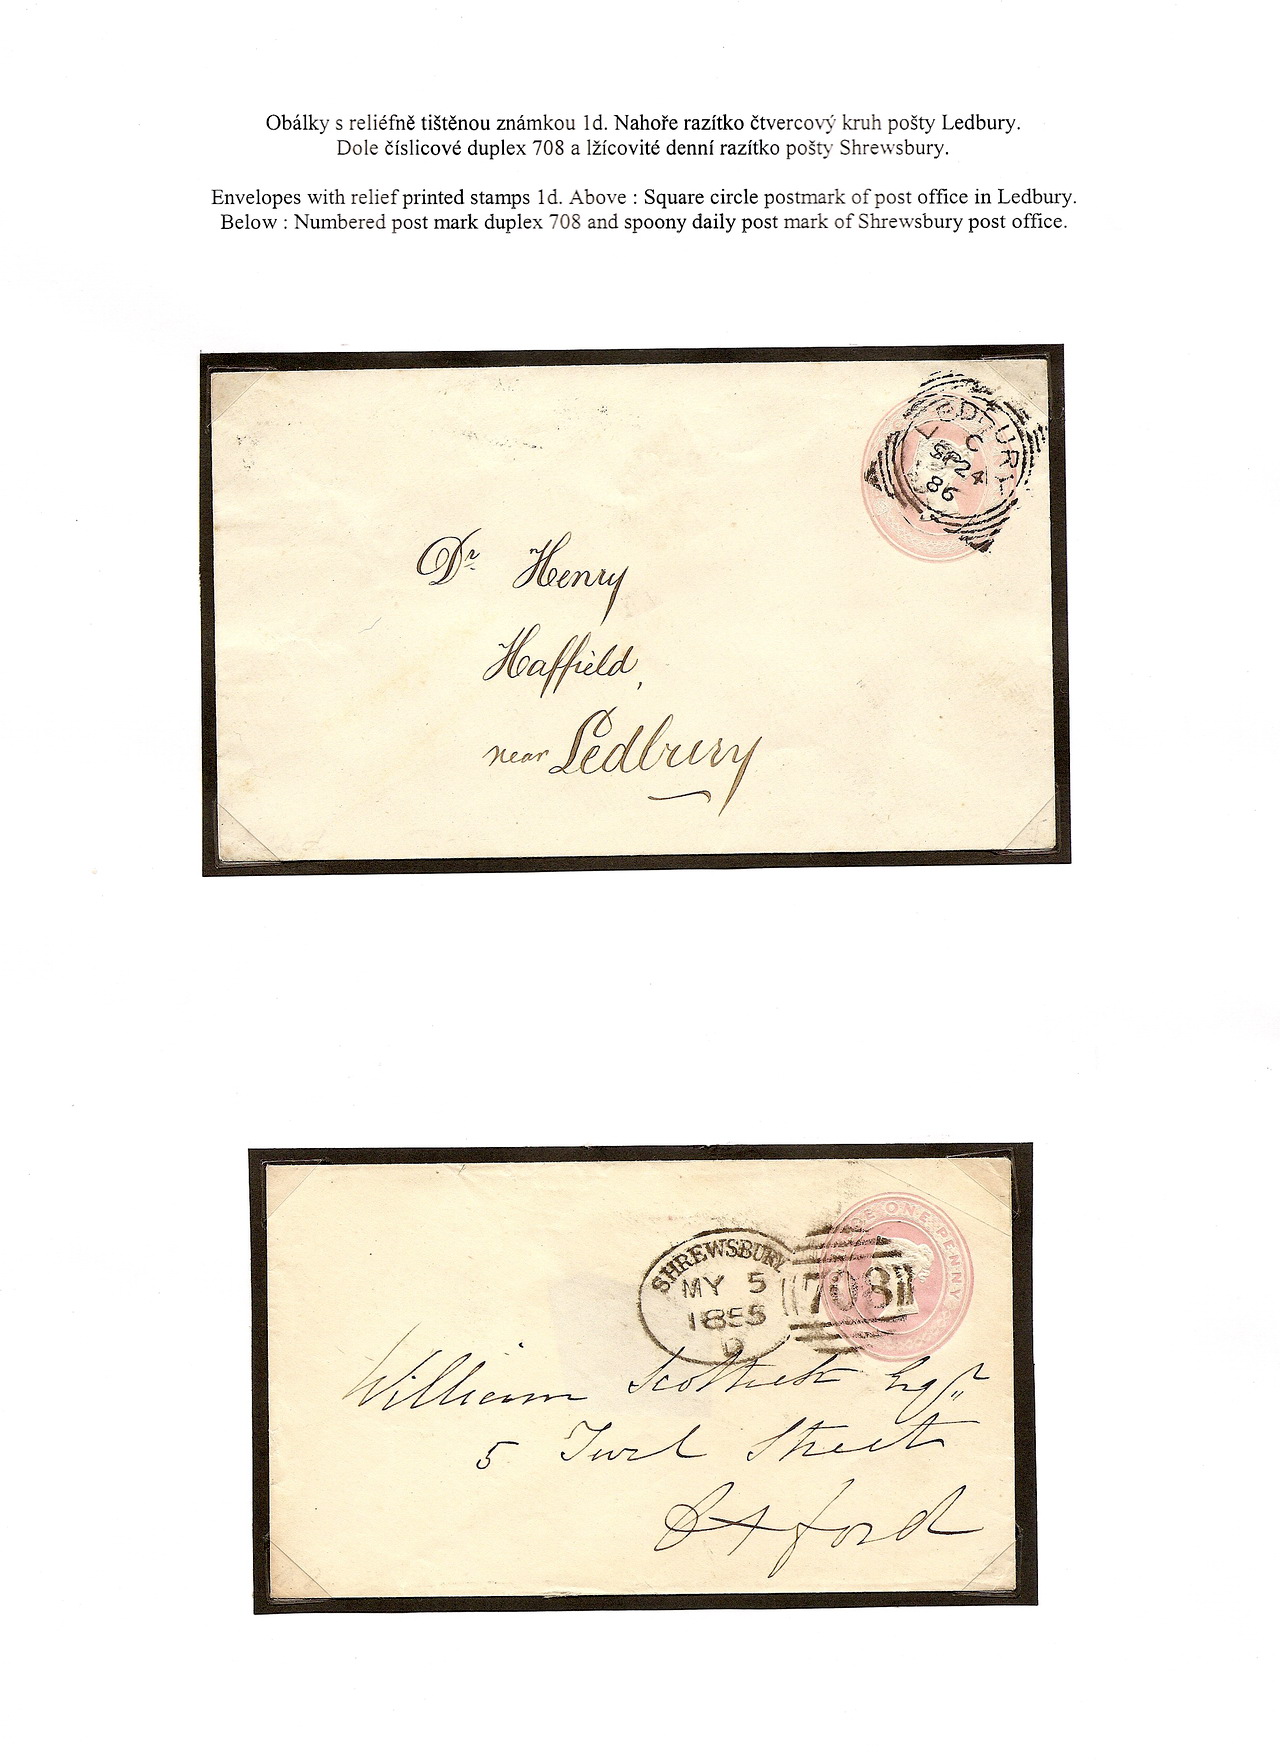 Obálky s reliéfně tištěnou známkou 1d. Nahoře razítko čtvercový kruh pošty Ledbury.
Dole číslicové duplex 708 a lžícovité denní razítko pošty Shrewsbury.
Envelopes with relief printed stamps 1d. Above : Square circle postmark of post office in Ledbury.
Below : Numbered post mark duplex 708 and spoony daily post mark of Shrewsbury post office.
LEDBURY
C
SP 24
86
Dr Henry
Haffield,
near Ledbury
ONE PENNY
SHREWSBURY
MY 5
1855
D
708
William Esqr
5 Turl Street
Oxford